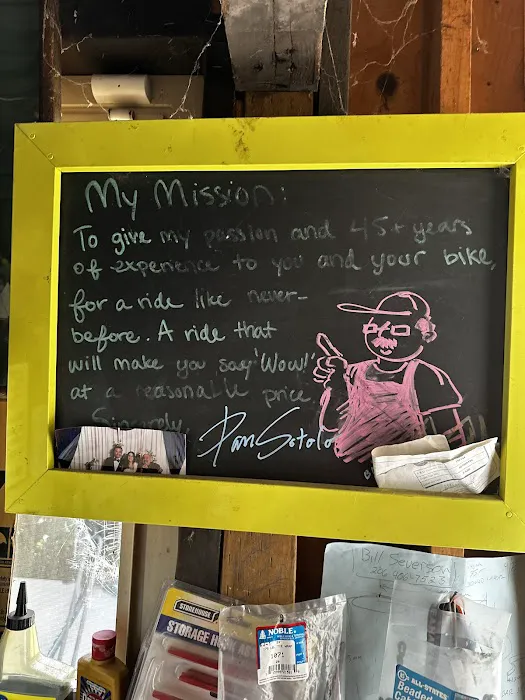 My Mission:
To give my passion and 45+ years
of experience to you and your bike,
for a ride like never-
before. A ride that
will make you say 'Wow!'
at a reasonable price.
Sincerely,
Dan Sotolo
Bill Severson
STOREHOUSE
STORAGE
NOBLE
1071
ALL-STATES
Beaded